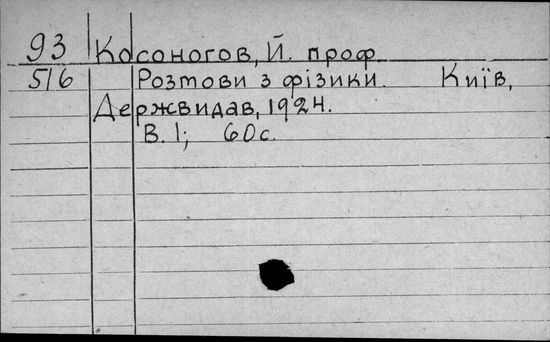 93 Косоногов, Й. проф.
516 Розтови з фізики. Київ,
Державидав, 1924.
В. 1; 60с.